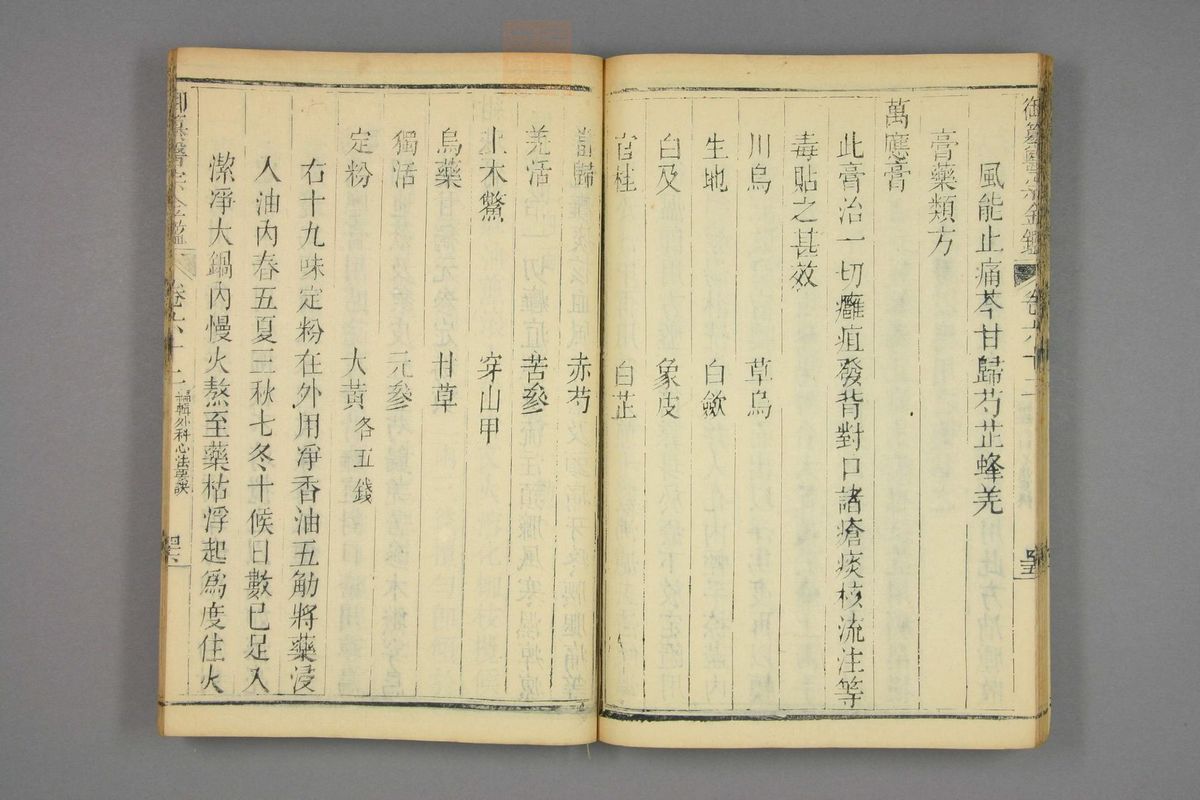 御纂醫宗金鑑 卷六十二
風能止痛芩甘歸芍芷蜂羌
膏藥類方
萬應膏
此膏治一切癰疽發背對口諸瘡痰核流注等
毒貼之甚效
川烏 草烏
生地 白斂
白及 象皮
官桂 白芷
當歸 赤芍
羌活 苦參
土木鱉 穿山甲
烏藥 甘草
獨活 元參
定粉 大黃各五錢
右十九味定粉在外用淨香油五觔將藥浸
入油內春五夏三秋七冬十候日數已足入
潔淨大鍋內慢火熬至藥枯浮起為度住火
御纂醫宗金鑑 卷六十二 編輯外科心法要訣